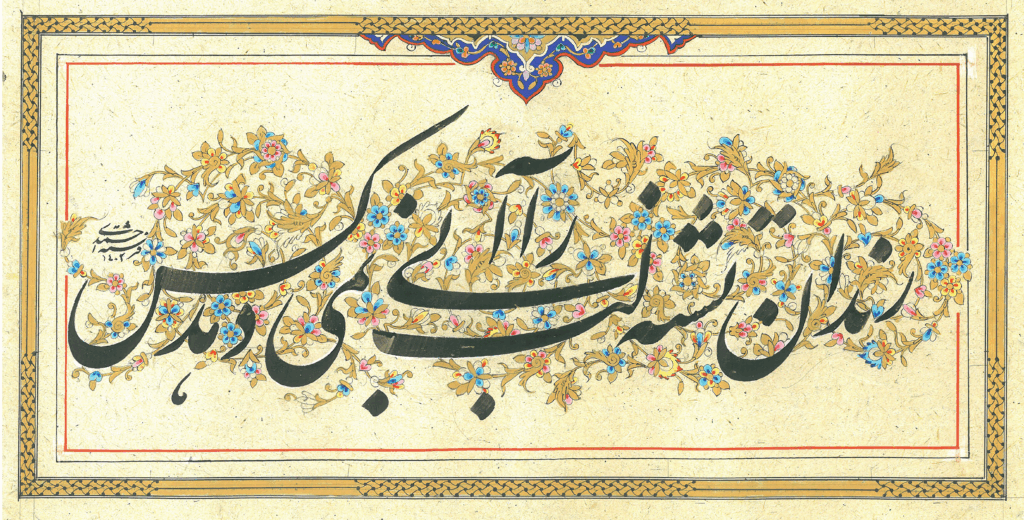 رندان تشنه لب را آبی نمی دهد کس